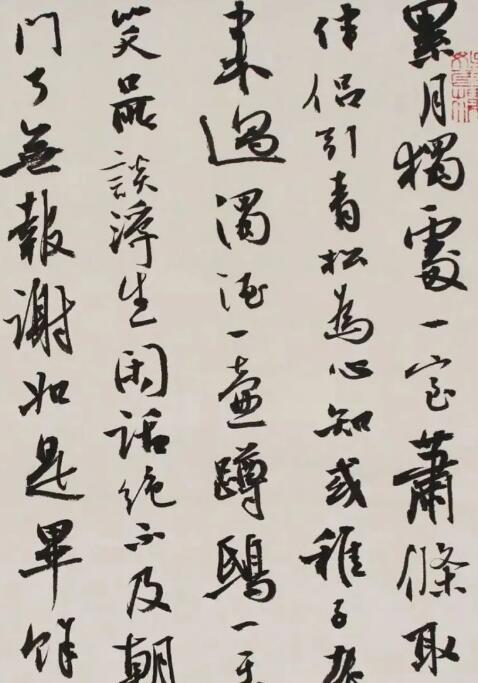 累月獨處一室蕭條取
伴侶引青松為心知或稚子
来過濁酒一壺蹲鴟一
笑品談浮生閑話絶不及朝
門了無報謝如是畢餘